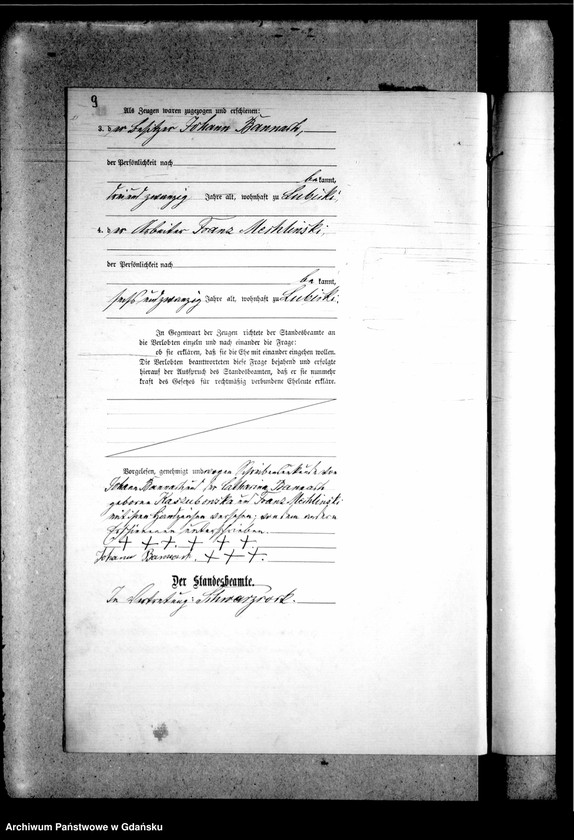 9
Als Zeugen waren zugezogen und erschienen:
3. der Besitzer Johann Bannach,
der Persönlichkeit nach
bekannt,
zwanzig Jahre alt, wohnhaft zu Lubicki.
4. der Arbeiter Franz Mechlinski,
der Persönlichkeit nach
be kannt,
sechsundzwanzig Jahre alt, wohnhaft zu Lubicki.
In Gegenwart der Zeugen richtete der Standesbeamte an
die Verlobten einzeln und nach einander die Frage:
ob sie erklären, daß sie die Ehe mit einander eingehen wollen.
Die Verlobten beantworteten diese Frage bejahend und erfolgte
hierauf der Ausspruch des Standesbeamten, daß er sie nunmehr
kraft des Gesetzes für rechtmäßig verbundene Eheleute erkläre.
Vorgelesen, genehmigt und wegen Schreibensunkunde von
Johann Bannach und der Catharina Bannach
geborene Kaszubowska und Franz Mechlinski
mit ihren Handzeichen versehen, von dem andern
Erschienenen unterschrieben.
+ + +. + + +
Johann Bannach. + + +.
Der Standesbeamte.
In Vertretung: Schwarzrock.
Archiwum Państwowe w Gdańsku